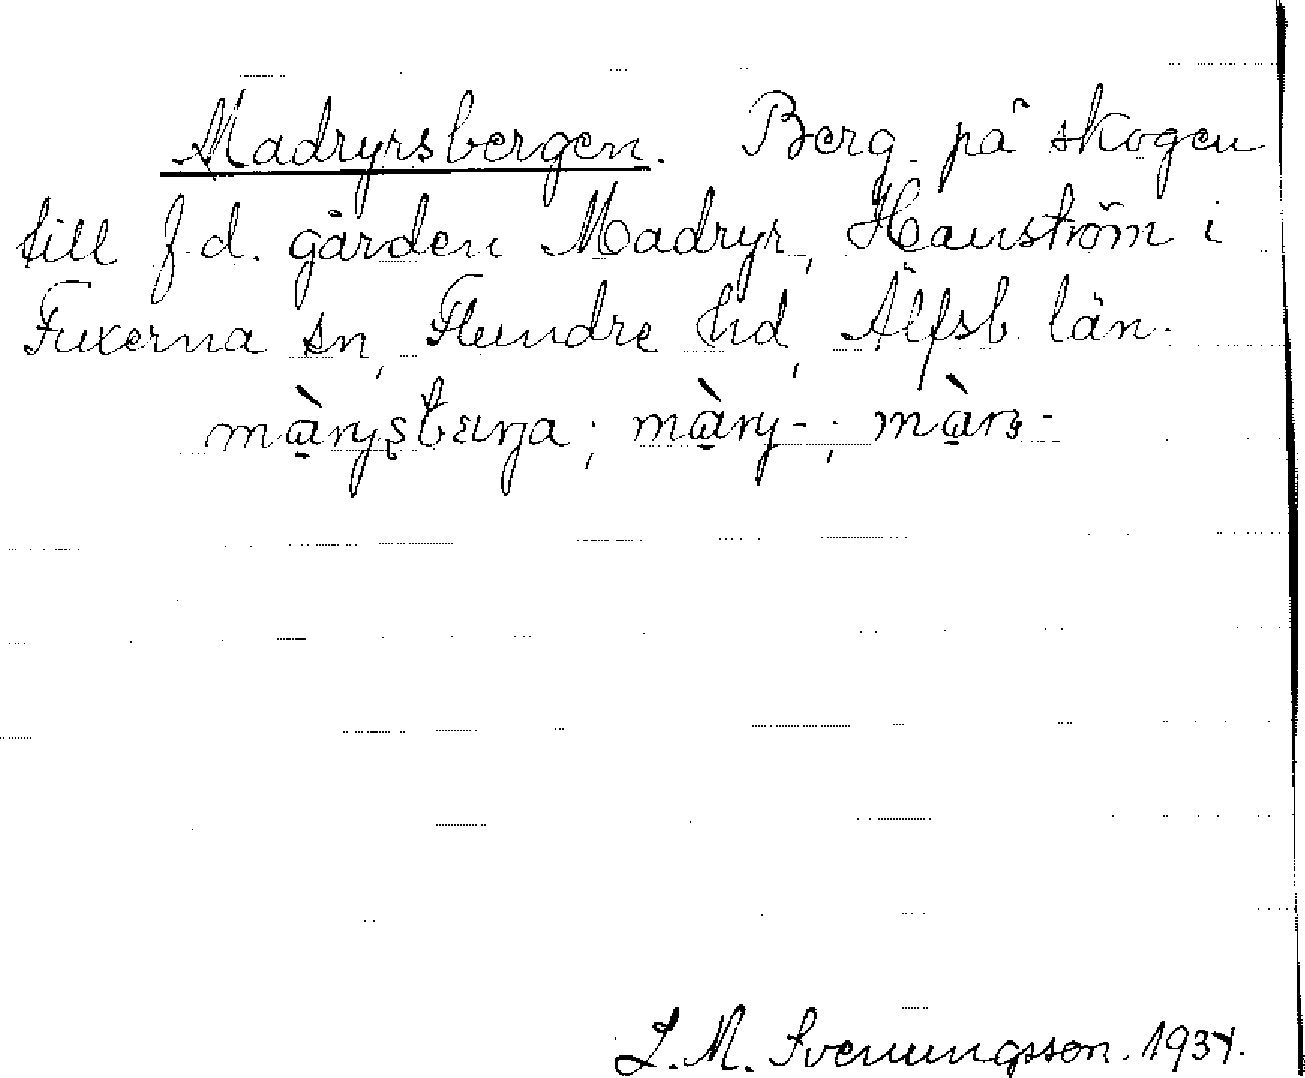 Madryrsbergen. Berg på skogen
till f.d. gården Madryr, Hanström i
Fuxerna sn, Flundre hd, Älfsb. län.
màryʂbærja; màry-; màrɤ-
L. M. Svenungsson. 1934.